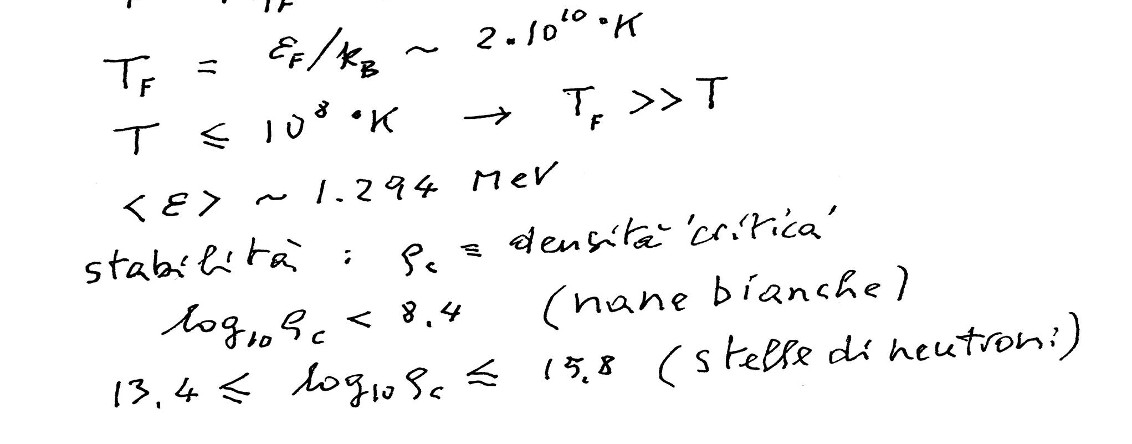 T_F = ε_F/k_B ~ 2·10^10 °K
T ≤ 10^8 °K → T_F >> T
<ε> ~ 1.294 MeV
stabilità : ρ_c ≡ densità 'critica'
log_10 ρ_c < 8.4 (nane bianche)
13.4 ≤ log_10 ρ_c ≤ 15.8 (stelle di neutroni)